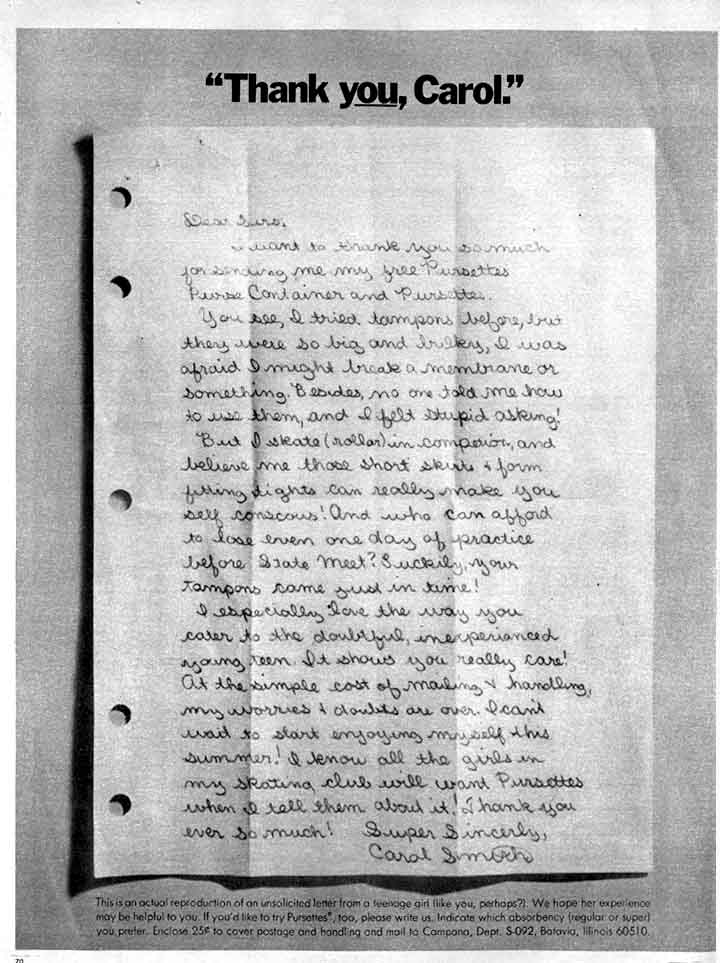 “Thank you, Carol.”
Dear Sirs,
I want to thank you so much
for sending me my free Pursettes
Purse Container and Pursettes.
You see, I tried tampons before, but
they were so big and bulky, I was
afraid I might break a membrane or
something. Besides, no one told me how
to use them, and I felt stupid asking!
But I skate (rollar) in competion, and
believe me those short skirts & form
fitting tights can really make you
self conscous! And who can afford
to lose even one day of practice
before State Meet? Luckily, your
tampons came just in time!
I especially love the way you
cater to the doubtful, inexperianced
young teen. It shows you really care!
At the simple cost of mailing & handling,
my worries & doubts are over. I cant
wait to start enjoying myself this
summer! I know all the girls in
my skating club will want Pursettes
when I tell them about it! Thank you
ever so much! Super Sincerly,
Carol Smith
This is an actual reproduction of an unsolicited letter from a teenage girl (like you, perhaps?). We hope her experience
may be helpful to you. If you'd like to try Pursettes®, too, please write us. Indicate which absorbency (regular or super)
you prefer. Enclose 25¢ to cover postage and handling and mail to Campana, Dept. S-092, Batavia, Illinois 60510.
70